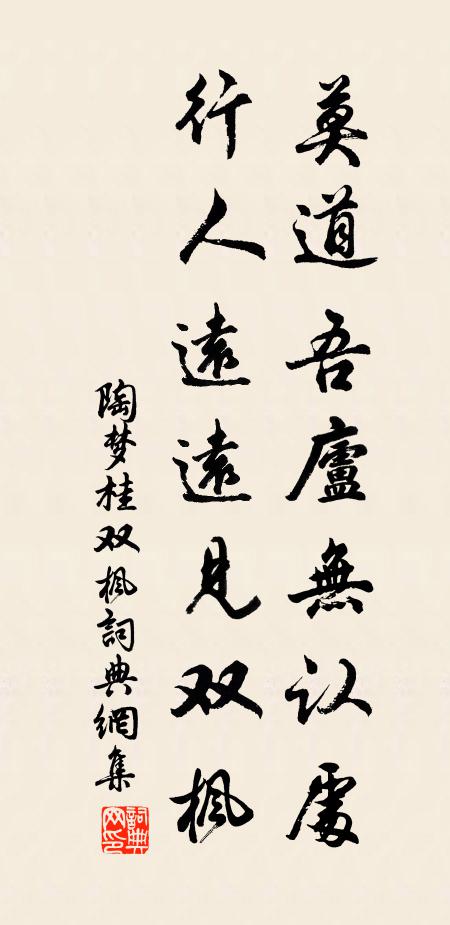 莫道吾廬無认處
行人遠遠見双楓
陶梦桂双楓詞典網集
詞典網印